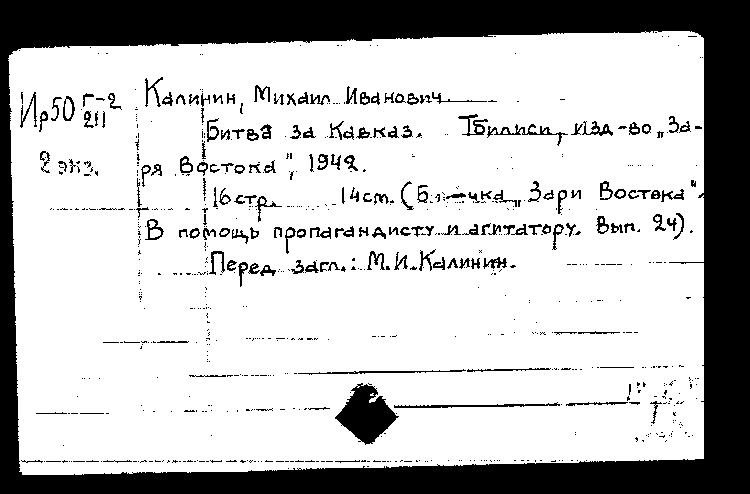 Ир50 Г-2
211
2 экз.
Калинин, Михаил Иванович.
Битва за Кавказ. Тбилиси, изд-во „За-
ря Востока", 1942.
16стр. 14см. („Зари Востока".
В помощь пропагандисту и агитатору. Вып. 24).
Перед загл.: М.И.Калинин.